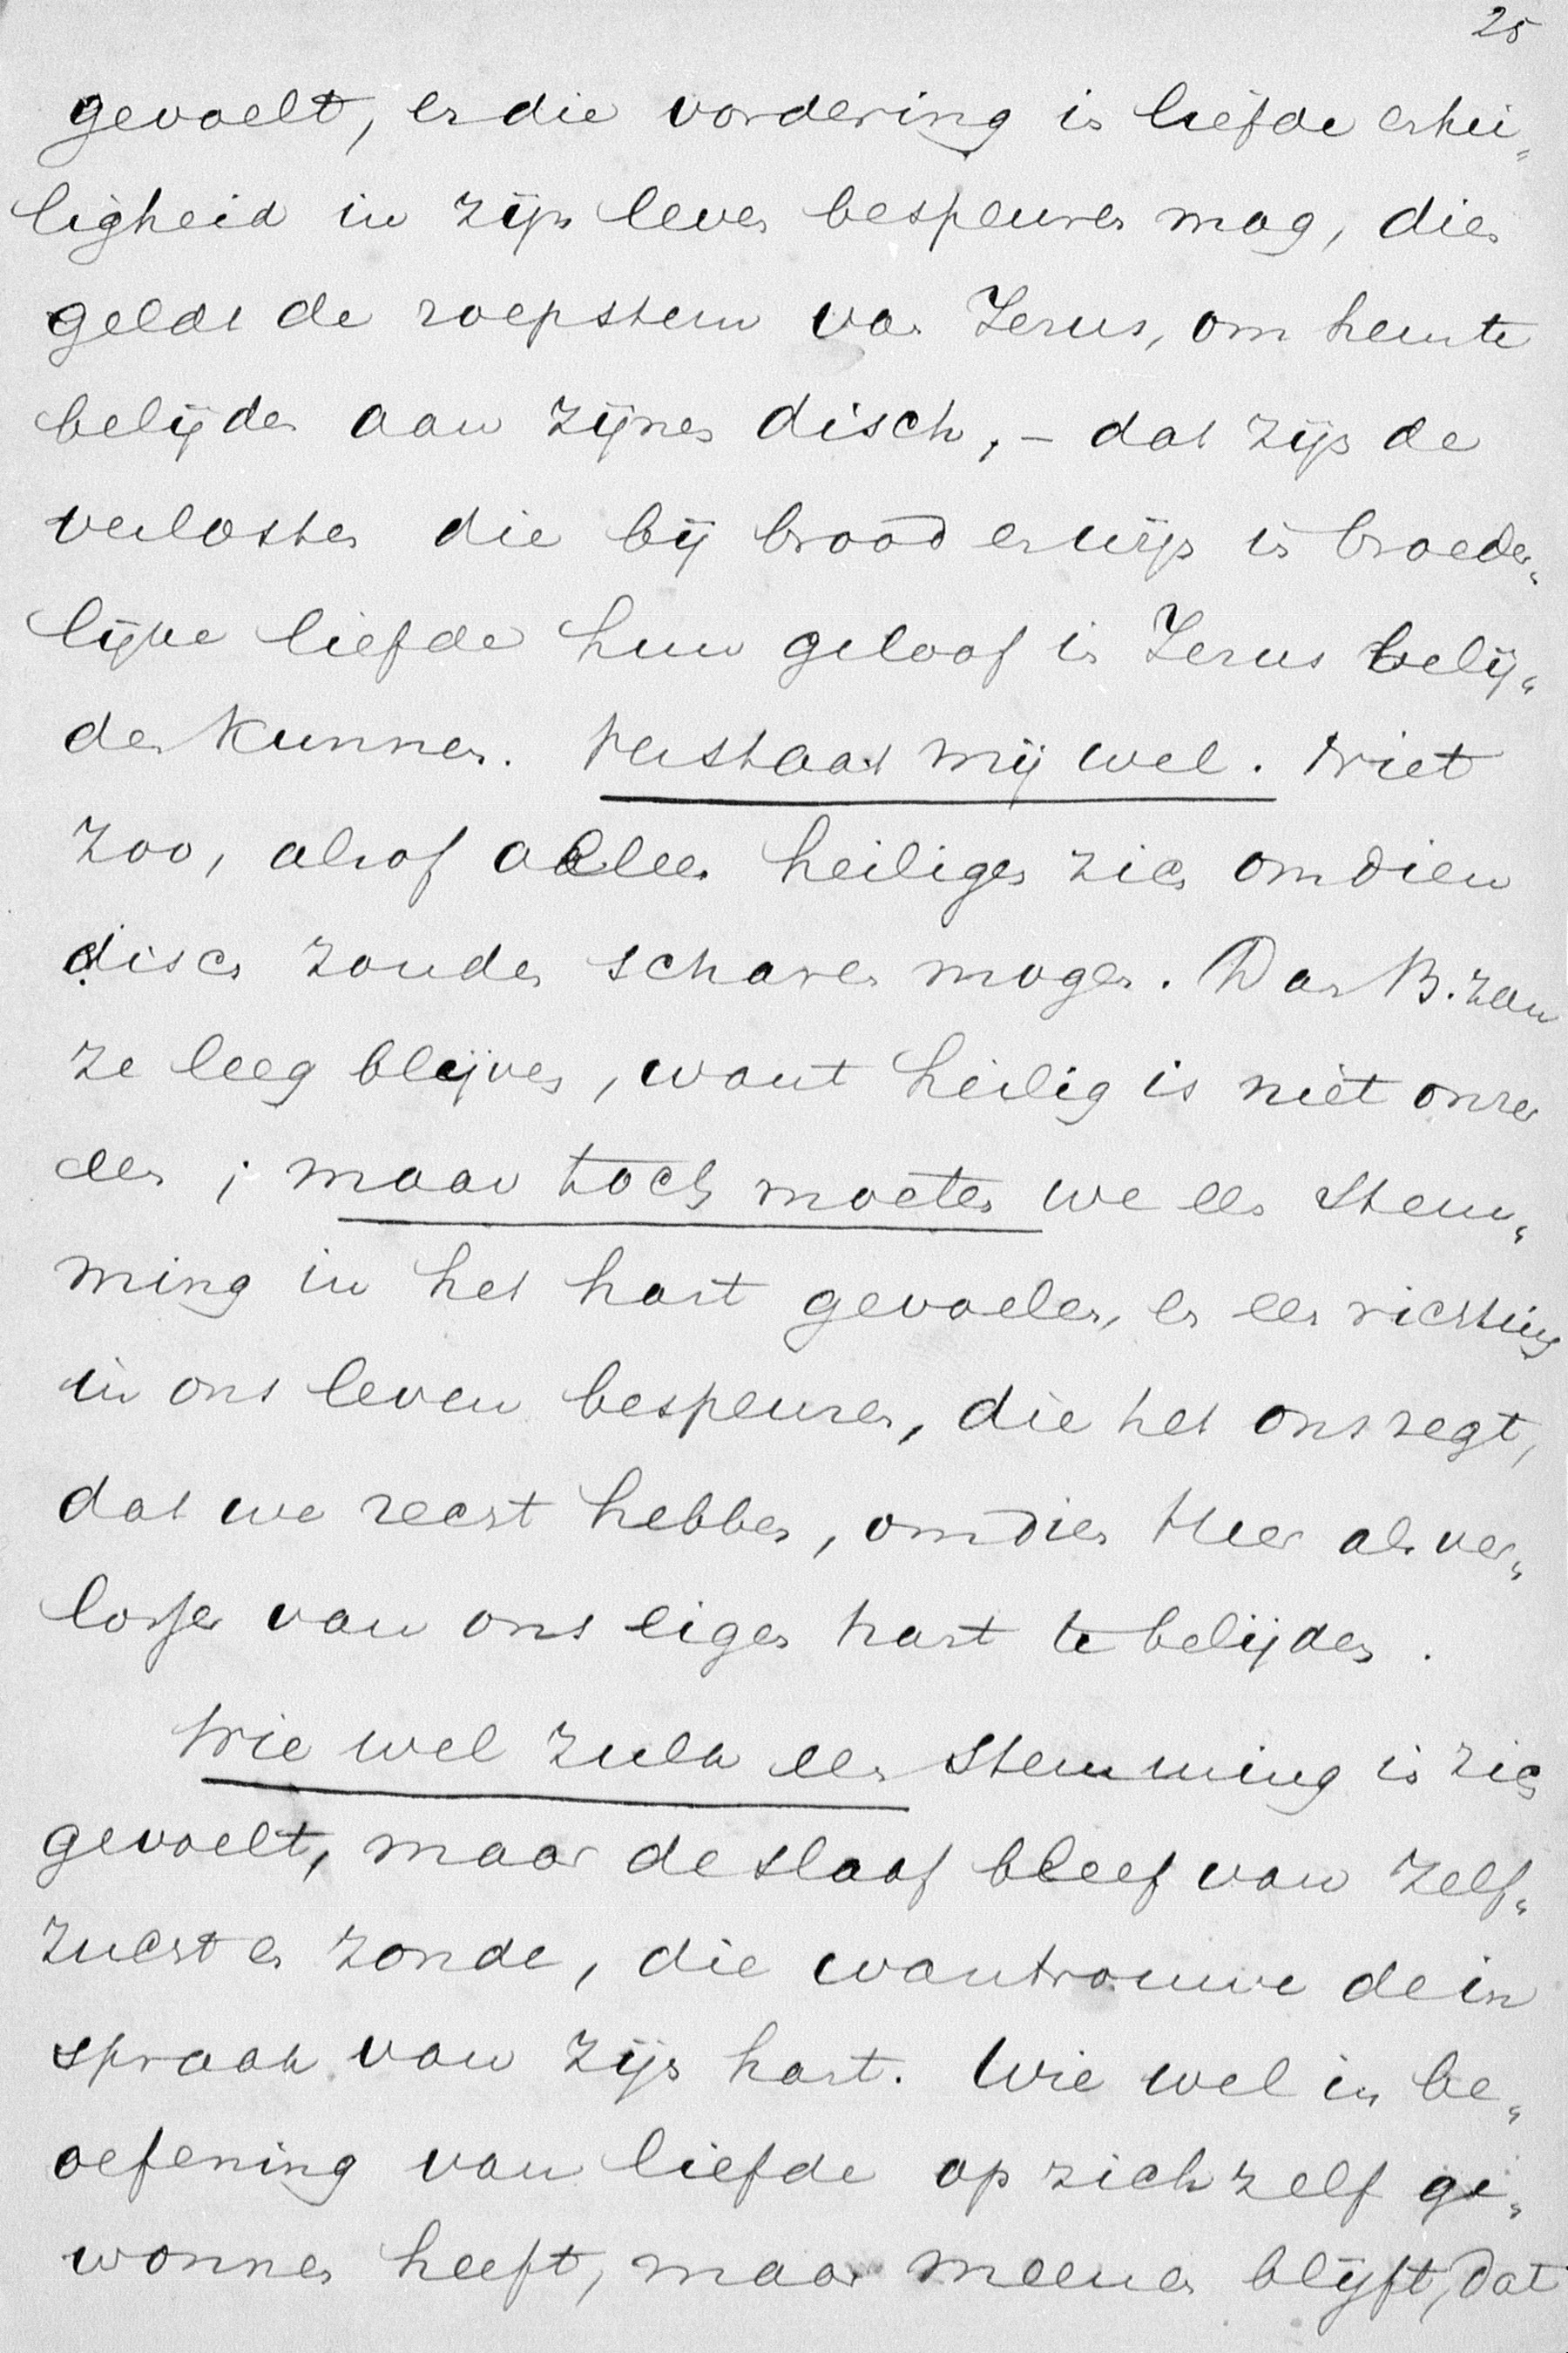 25
gevoelt, en die vordering in liefde en hei„
ligheid in zijn leven bespeuren mag, dien
geldt de roepstem van Jezus, om hem te
belijden aan zijnen disch, – dat zijn de
verlosten die bij brood en wijn in broeder„
lijke liefde hun geloof in Jezus belij„
den kunnen. Verstaat mij wel. Niet
zoo, alsof alleen heiligen zich om dien
disch zouden scharen mogen. Dan B. zou
ze leeg blijven, want heilig is niet onzer
een; maar toch moeten we een stem„
ming in het hart gevoelen, en een richting
in ons leven bespeuren, die het ons zegt,
dat we recht hebben, om dien Heer als ver„
losser van ons eigen hart te belijden.
Wie wel zulk een stemming in zich
gevoelt, maar de slaaf bleef van zelf„
zucht en zonde, die wantrouwe de in
spraak van zijn hart. Wie wel in be„
oefening van liefde op zich zelf ge„
wonnen heeft, maar meenen blijft, dat